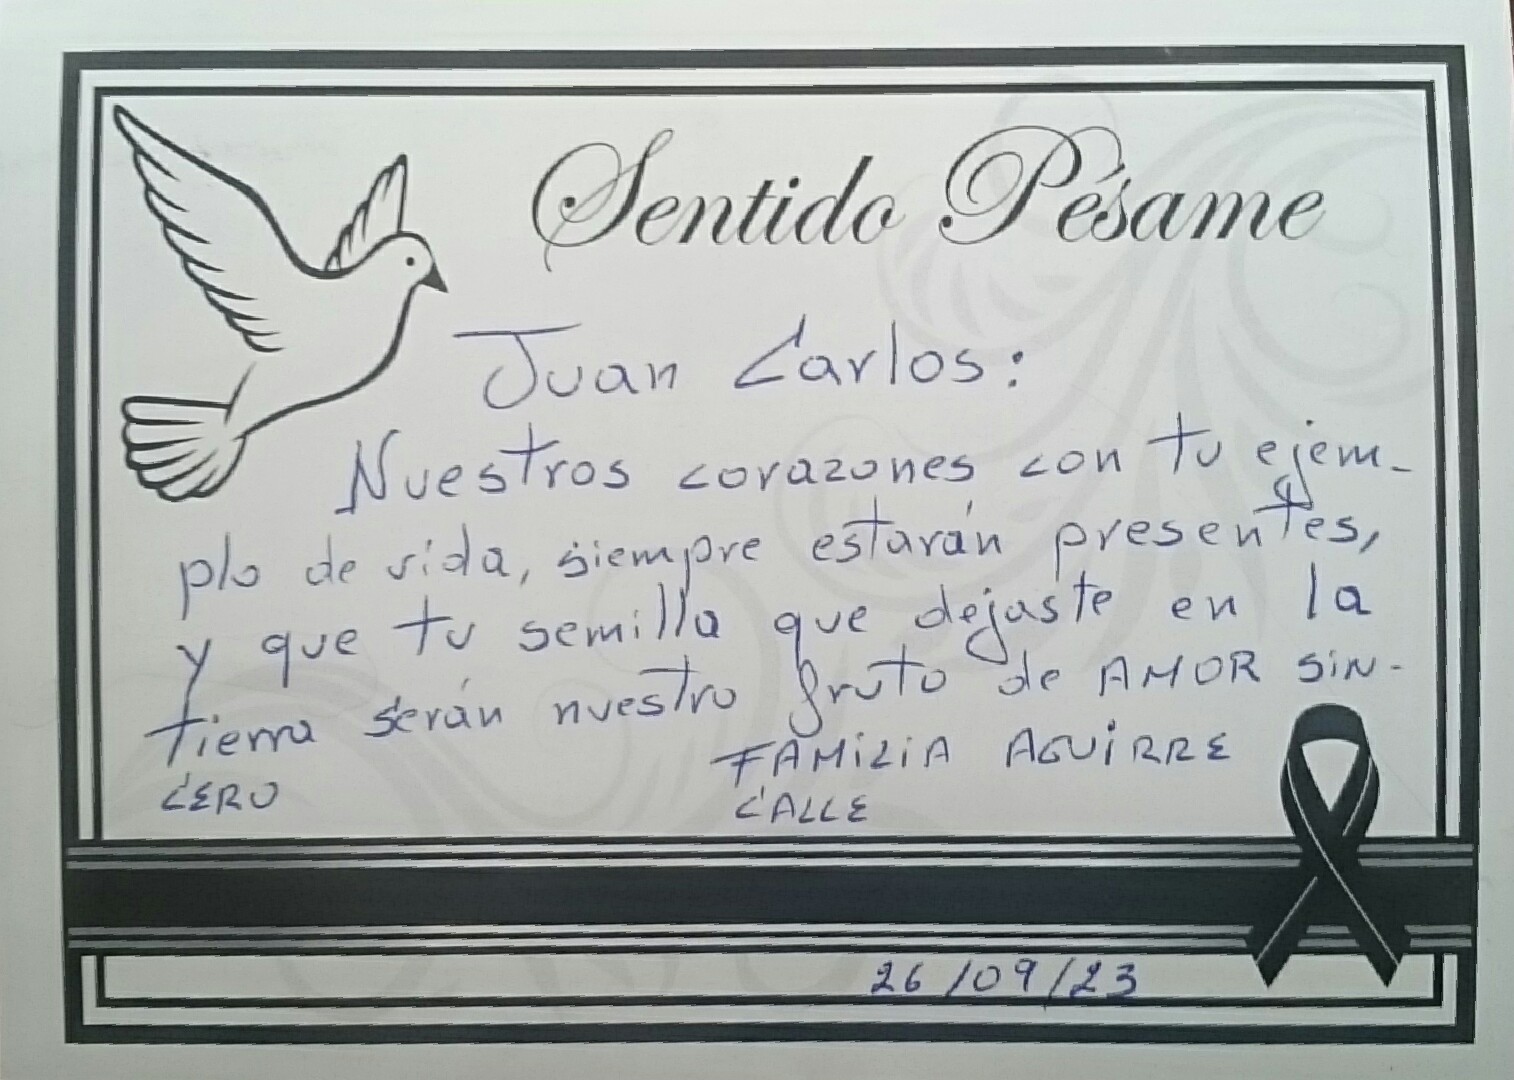 Sentido Pésame
Juan Carlos:
Nuestros corazones con tu ejem-
plo de vida, siempre estarán presentes,
y que tu semilla que dejaste en la
tierra serán nuestro fruto de AMOR SiN-
CERO
FAMiLiA AGUiRRE
CALLE
26/09/23